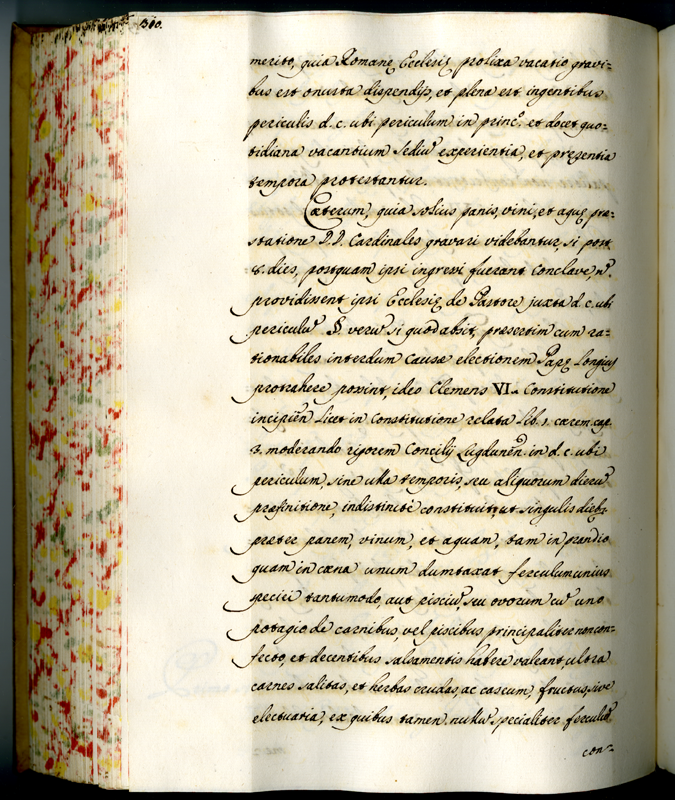 310.
merito, quia Romanę Ecclesię prolixa vacatio gravi=
bus est onusta dispendijs, et plena est ingentibus
periculis d. c. ubi periculum in princ.º et docet quo=
tidiana vacantium sediũ experientia, et pręsentia
tempora protestantur.
Cæterum, quia solius panis, vini, et aquę præ=
statione D.D. Cardinales gravari videbantur, si post
8. dies, postquam ipsi ingressi fuerant Conclave, nõ
providissent ipsi Ecclesię de Pastore juxta d. c. ubi
periculũ §. verũ si quod absit, præsertim cum ra=
tionabiles interdum causæ electionem Papę longius
protrahere possint, ideo Clemens VI. Constitutione
incipieñ Licet in Constitutione relata lib. 1. cærem. cap.
3. moderando rigorem Concilij Lugduneñ. in d. c. ubi
periculum, sine ulla temporis, seu aliquorum dierũ
præfinitione, indistinctè constituit, ut singulis dieb.
præter panem, vinum, et aquam, tam in prandio
quam in cæna unum dumtaxat ferculum unius
speciei tantumodo, aut pisciũ, seu ovorum cũ uno
potagio de carnibus, vel piscibus principaliter non con=
fecto, et decentibus salsamentis habere valeant, ultra
carnes salitas, et herbas crudas, ac caseum, fructus, sive
electuaria, ex quibus tamen nullũ specialiter ferculũ
con=